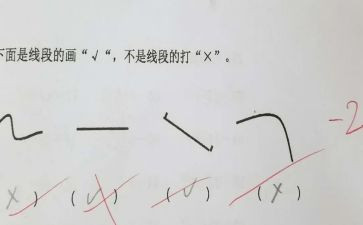 下面是线段的画“√“，不是线段的打“×”。
-2
×） （√） （√） （×）